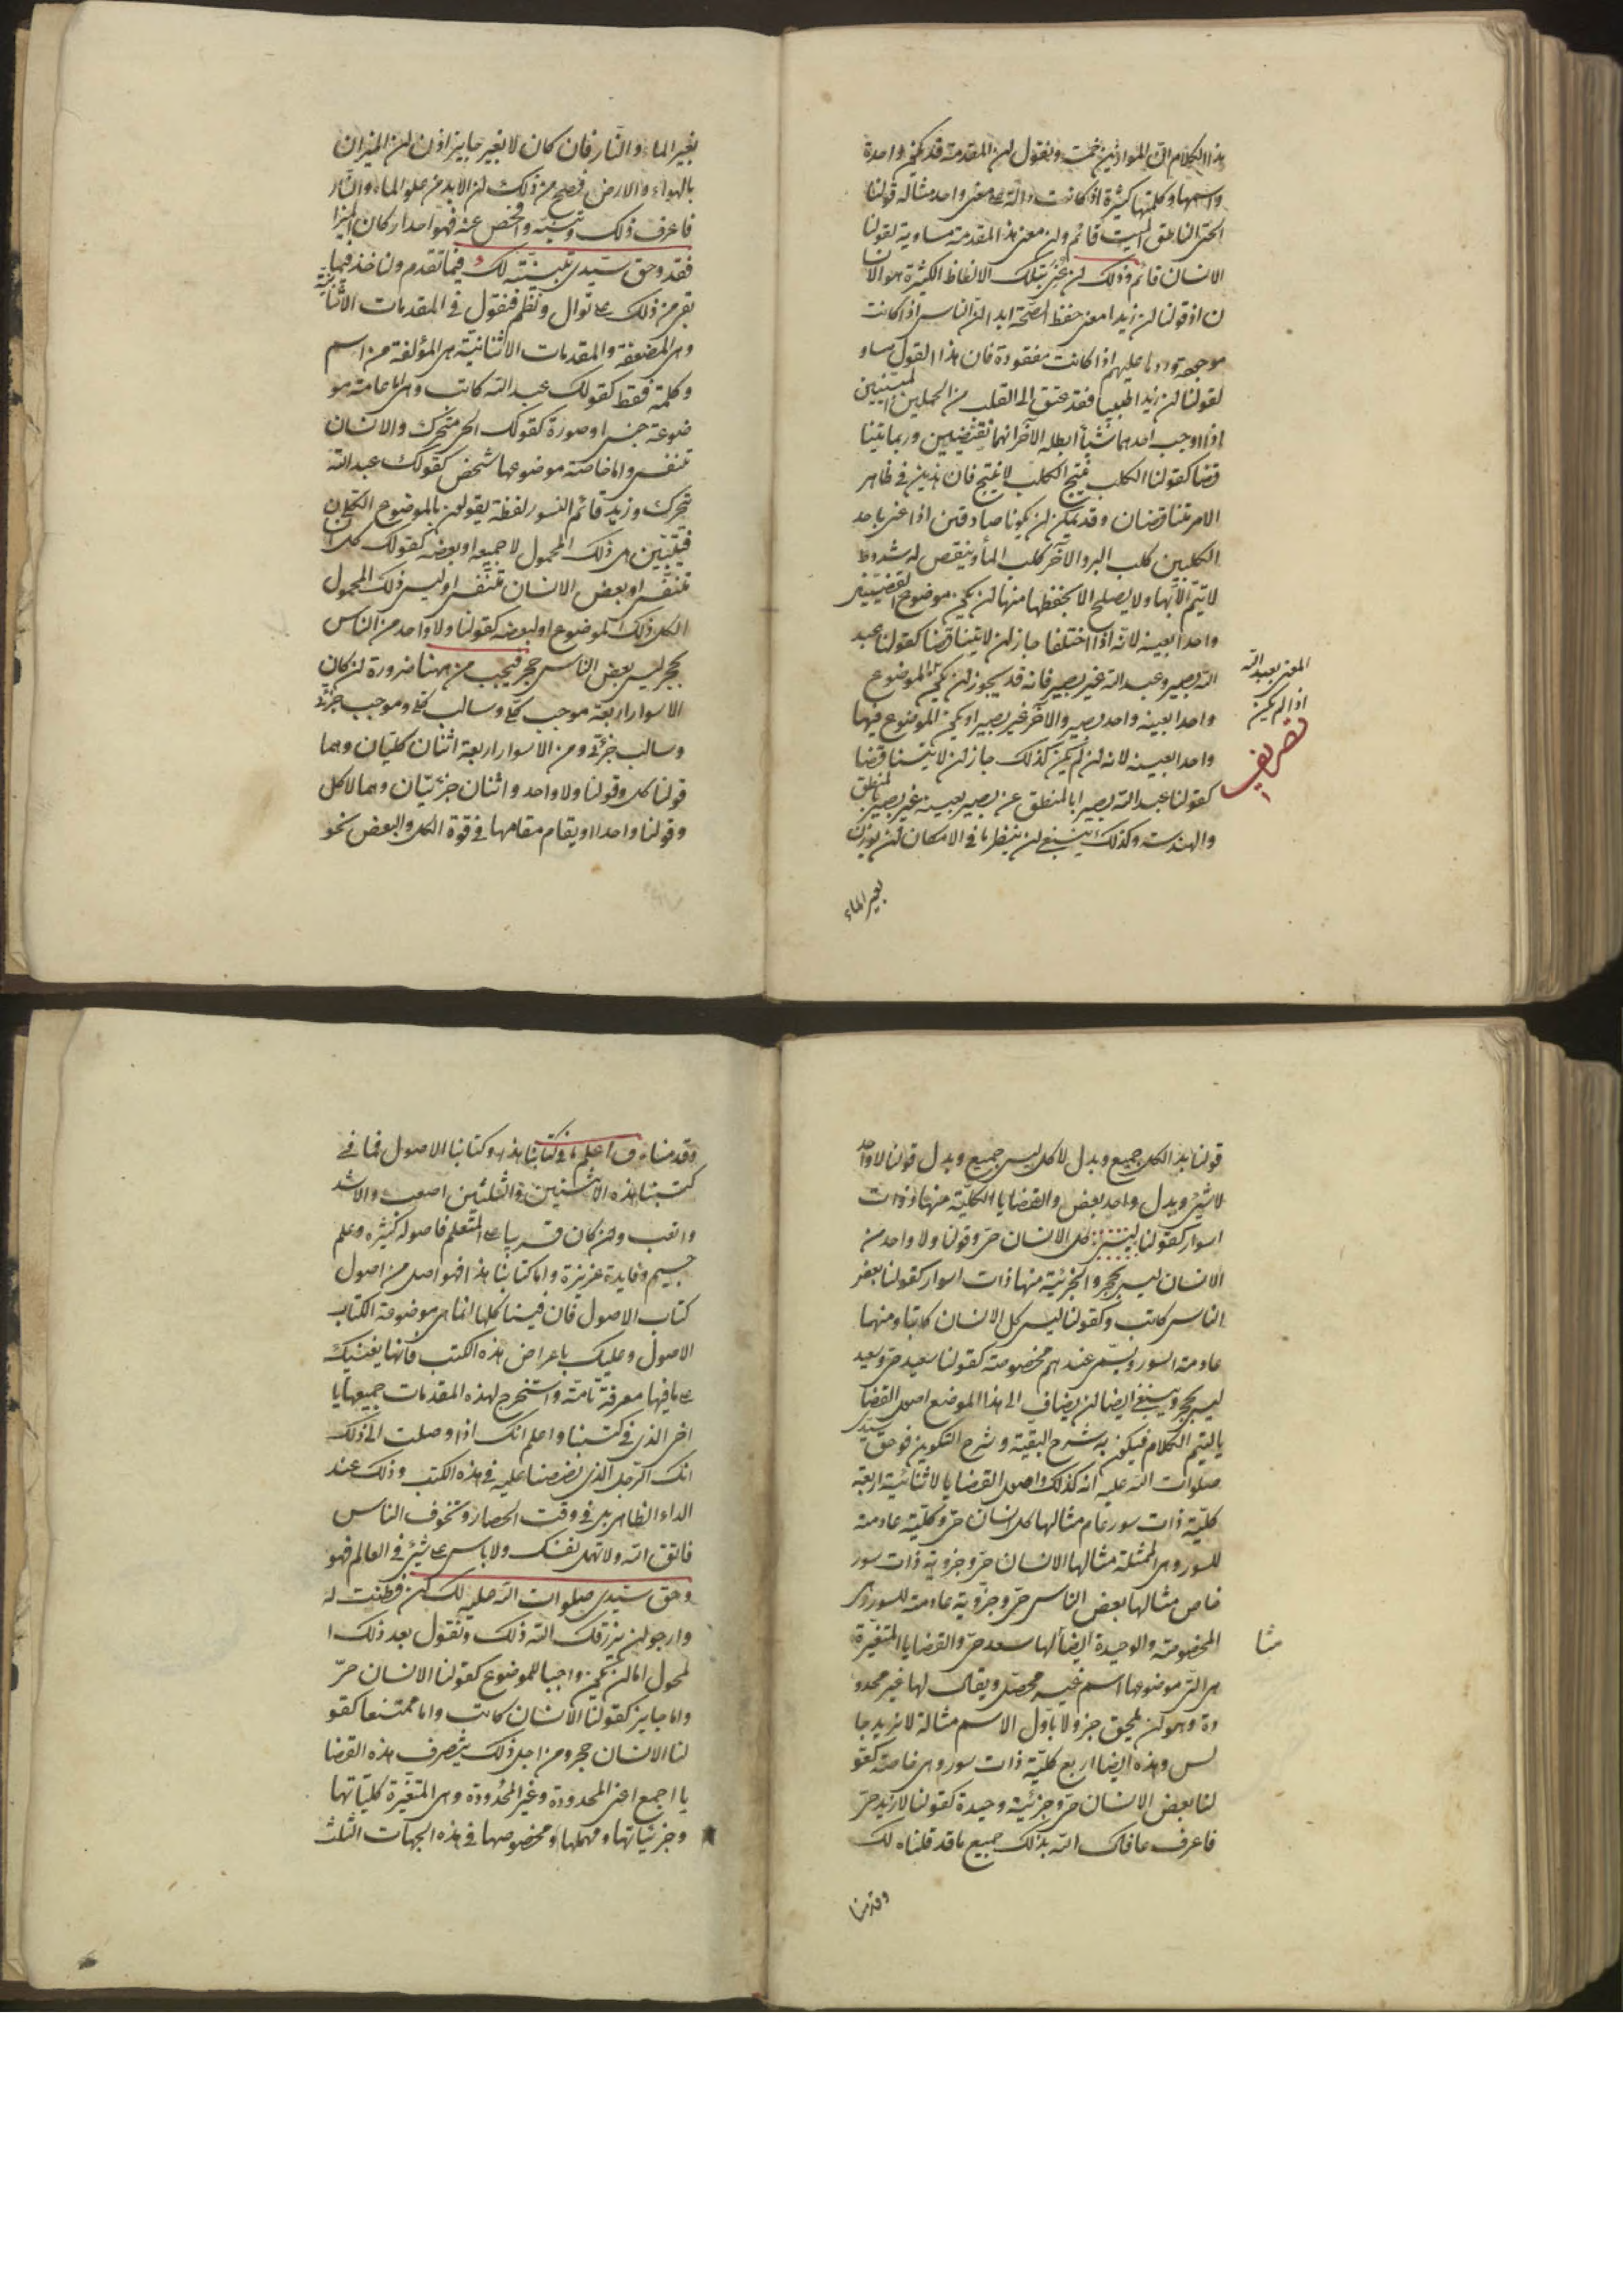 هذا الكلام الى الموازين ختمت ونقول لن المقدمة قد تكون واحدة
واسمها وكلمتها كثيرة اذ كانت دالة على معنى واحد مثاله قولنا
الحى الناطق الميت قائم ولن معنى هذا المقدمة مساوية لقولنا
الانسان قائم وذلك لن عنى بتلك الالفاظ الكثيرة هو الانسا
ن اذ قولنا لن زيدا معنى حفظ الصحة ابدا لن الناس اذا كانت
موجهة وردها عليهم اذا كانت مفقودة فان هذا القول مساو
لقولنا لن زيدا طبيبا فقد عتق الى القلب من الجملتين المبتنيين
اذا اوجب احدهما شيئا ابطله الآخر انهما نقيضيين وربما يتنا
قضا كقولنا الكلب نتج الكلب لا نتج فان هذين فى ظاهر
الامر تناقضان وقد يمكن لن يكونا صادقتين اذا عنى باحد
الكلبين كلب البر والآخر كلب الماء وينقص له شروط
لا يتم الا بها ولا يصلح الا بحفظها منها لن يكون موضوع القضيتين
واحدا بعينه لانه اذا اختلفا جاز لن لا يتناقضا كقولنا عبد
الله بصير وعبد الله غير بصير فانه قد يجوز لن يكون الموضوع
واحدا بعينه واحد بصير والآخر غير بصير او يكون الموضوع فيهما
واحدا بعينه لانه لن لم يكن كذلك جاز لن لا يتناقضا
كقولنا عبد الله بصير ا بالمنطق عن بصير بعينه غير بصير بالمنطق
والهندسة وكذلك ينبغى لن ينظر ما فى الامكان لن يوزن
المعنى بعبد الله
اذا لم يكن
بغير الماء
بغير الماء والنار فان كان لا بغير جايز اذن لن الميزان
بالهواء والارض فصح من ذلك لن لا بد من علو الماء والنار
فاعرف ذلك وتبينه وافحص عنه فهو احد اركان الميزا
فقد وحق سيدى تبينته لك فيما تقدم ولناخذ فيما
بقى من ذلك على توال ونظم فنقول فى المقدمات الاثنانية
وهى المضعفة والمقدمات الاثنانية هى المؤلفة من اسم
وكلمة فقط كقولك عبد الله كاتب وهى اما عامة مو
ضوعة جنس او صورة كقولك الحى متحرك والانسان
تنفس واما خاصة موضوعها شخص كقولك عبد الله
تحرك وزيد قائم السور لفظة يقولن بالموضوع الكلان
فيتبين هى ذلك المحمول لا جميعه او بعضه كقولك كل انسان
تنفس او بعض الانسان تنفس او ليس ذلك المحمول
الكل ذلك لموضوع او لبعضه كقولنا ولا واحد من الناس
بحجر ليس بعض الناس حجر فيجب من ههنا ضرورة لن كان
الاسوار اربعة موجب كلى وسالب كلى وموجب جزئى
وسالب جزئى ومن الاسوار اربعة اثنان كليان وهما
قولنا كل وقولنا ولا واحد واثنان جزئيان وهما لا كل
وقولنا واحدا او يقام مقامها فى قوة الكل والبعض نحو
قولنا بذا الكل جميع وبدل لا كل ليس جميع وبدل قولنا لا واحد
لا شئ وبدل واحد بعض والقضايا الكلية منها ذوات
اسوار كقولنا كل الانسان حى وقولنا ولا واحد من
الانسان ليس بحجر والجزئية منها ذات اسوار كقولنا بعض
الناس كاتب وكقولنا ليس كل الانسان كاتبا ومنهما
عادمة السور ويسمى عندهم مخصوصة كقولنا سعيد حى وسعيد
ليس بحجر وينبغى ايضا لن يضاف الى هذا الموضع اصول القضا
يا ليتم الكلام فيكون به شرح البقية وشرح التكوين فوحق سيدى
صلوات الله عليه انه كذلك واصول القضايا لاثنائية اربعة
كلية ذات سور عام مثالها كل انسان حى وكلية عادمة
للسور وهى الممثلة مثالها الانسان حى وجزوية ذات سور
خاص مثالها بعض الناس حى وجزوية عادمة للسور وهى
المخصوصة والوحيدة ايضا لها سعد حى والقضايا المتغيرة
هى التى موضوعها اسم غير محصل ويقال لها غير محدو
دة وهو لن يلحق جزو لا باول الاسم مثاله لا زيد جا
لس وهذه ايضا اربع كلية ذات سور وهى خاصة كقو
لنا بعض الانسان حى وجزئية وحيدة كقولنا لا زيد حى
فاعرف عافاك الله بذلك جميع ما قد قلناه لك
مثا
وقدمنا
وقدمناه فاعلم ما فى كتابنا هذه وكتابنا الاصول فما فى
كتبنا هذه الاثنين والثلثين اصعب ولا اشد
واتعب ولن كان قريبا على المتعلم فاصوله كثيرة وعلم
جسيم وفايدة عزيزة واما كتابنا هذا فهو اصل من اصول
كتاب الاصول فان فينا كلها انما هى موضوعة الكتاب
الاصول وعليك باعراض هذه الكتب فانها يغنيك
على ما فيها معرفة تامة واستخرج لهذه المقدمات جميعها يا
اخى الذى فى كتبنا واعلم انك اذا وصلت الى ذلك
انك الرجل الذى نصصنا عليه فى هذه الكتب وذلك عند
الداء الظاهر بدى فى وقت الحصار وتخوف الناس
فاتق الله ولا تهمل نفسك ولا باس على شئ فى العالم فهو
وحق سيدى صلوات الله عليه لك لن فطنت له
وارجو لن يرزقك الله ذلك ونقول بعد ذلك ا
لمحمول اما لن يكون واجبا للموضوع كقولنا الانسان حى
واما جايز كقولنا الانسان كاتب واما ممتنعا كقو
لنا الانسان حجر ومن اجل ذلك يتصرف هذه القضا
يا اجمع اعنى المحدودة وغير المحدودة وهى المتغيرة كلياتها
وجزئياتها ومهملها ومخصوصها فى هذه الجهات الثلث